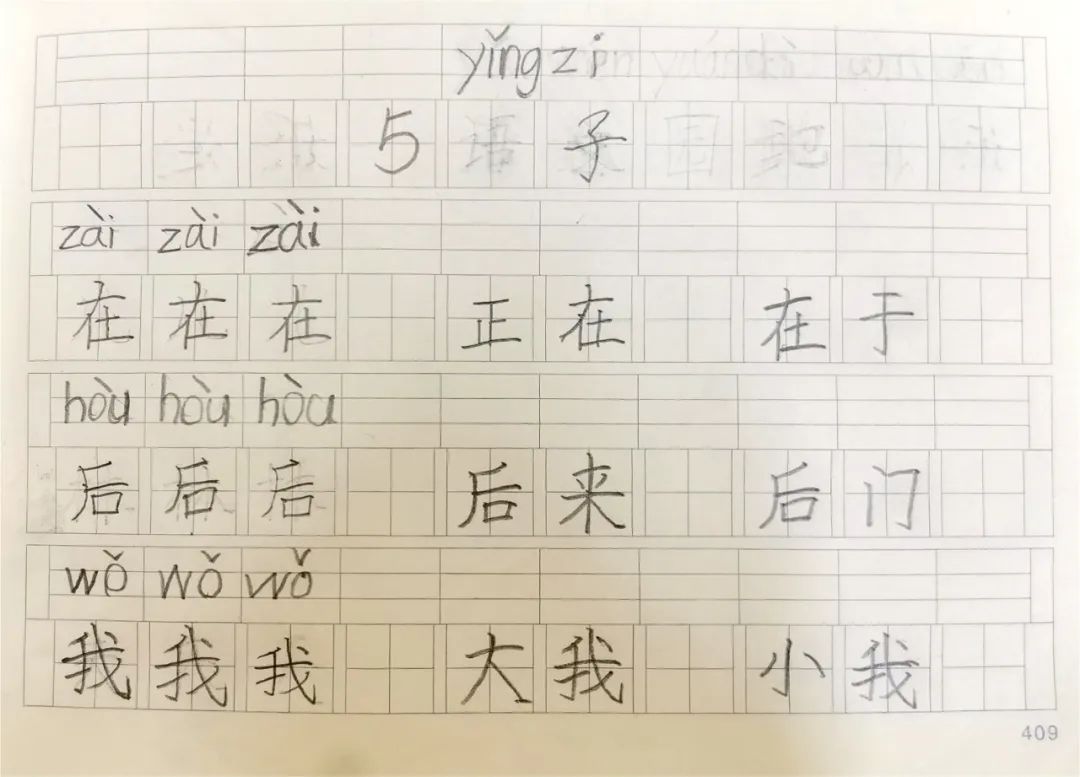 yǐng zi
5 子
zài zài zài
在 在 在 正 在 在 于
hòu hòu hòu
后 后 后 后 来 后 门
wǒ wǒ wǒ
我 我 我 大 我 小 我
409